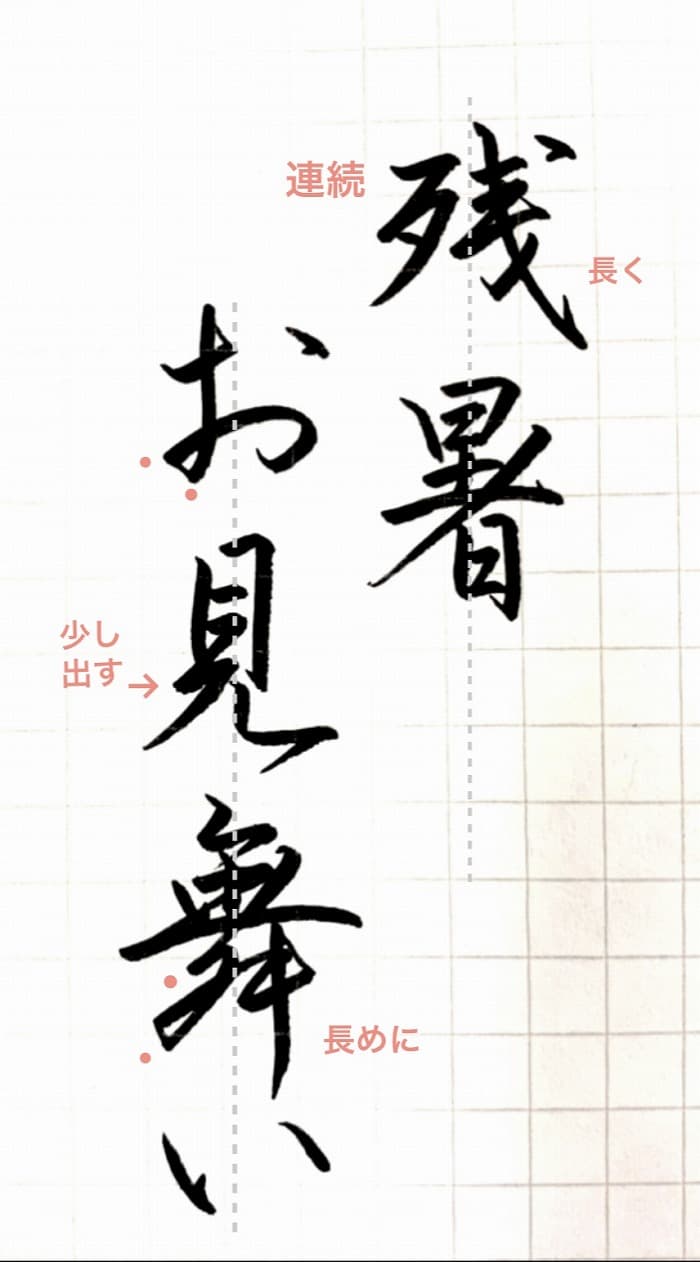 残暑
連続
長く
お見舞い
少し
出す→
長めに